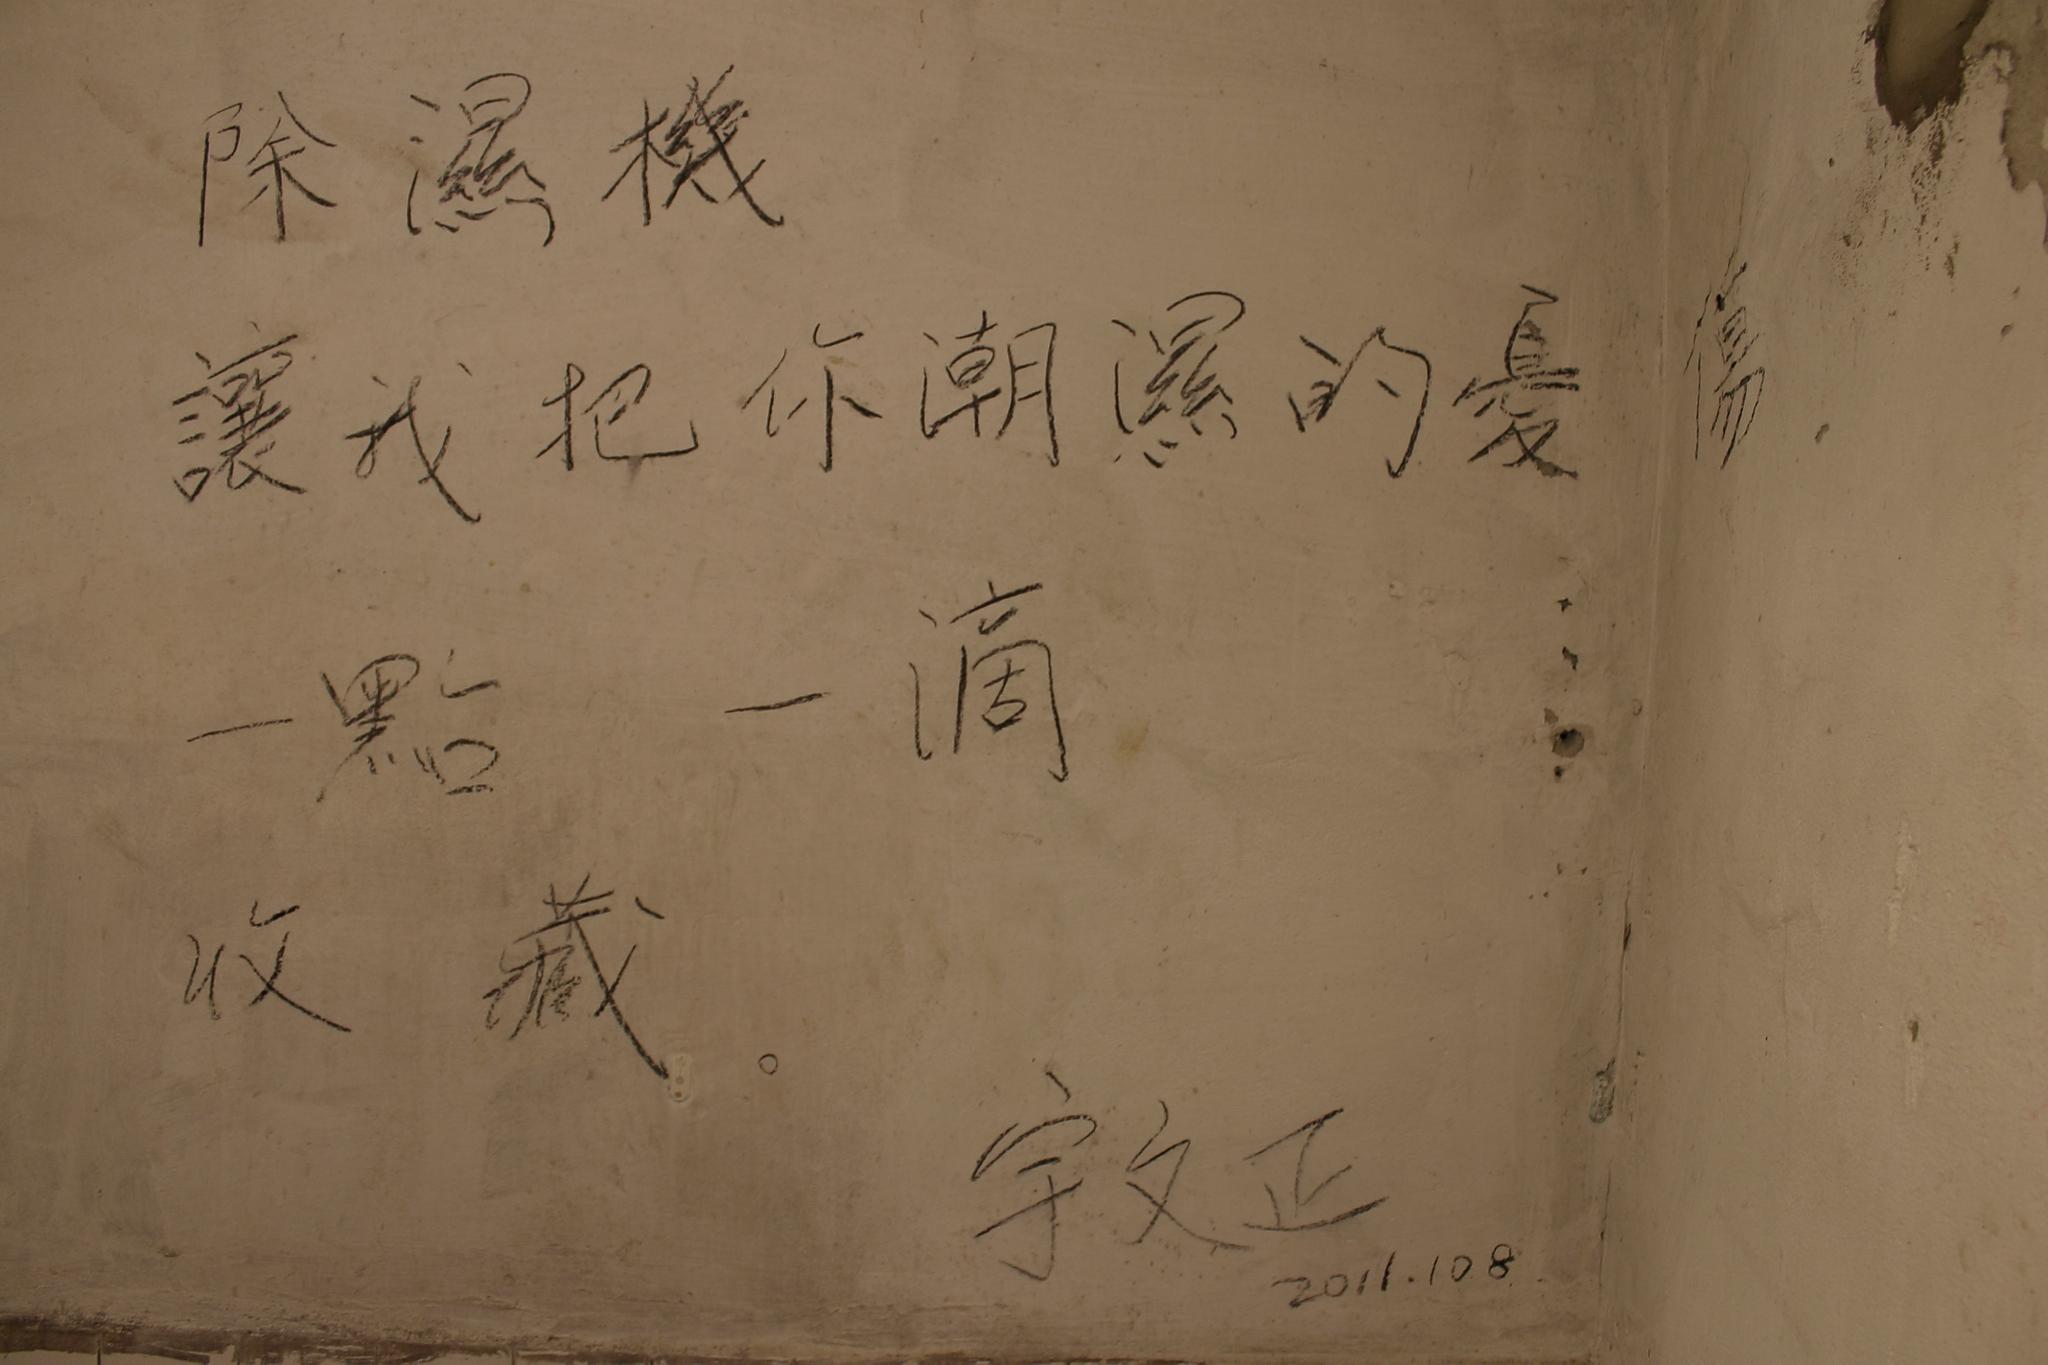 除濕機
讓我把你潮濕的憂傷
一點 一滴
收藏。
宇文正
2011.108